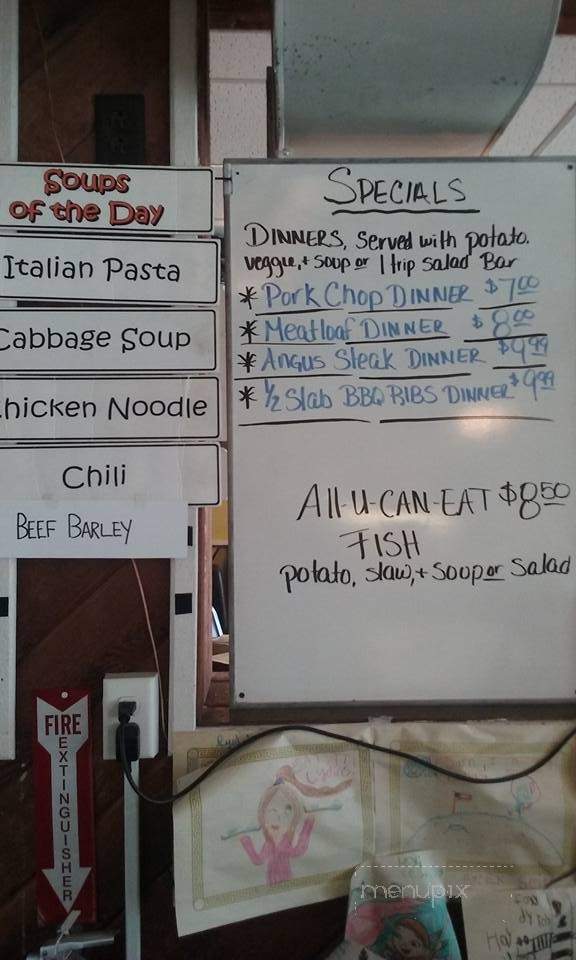 Soups
of the Day
Italian Pasta
Cabbage Soup
hicken Noodle
Chili
BEEF BARLEY
SPECIALS
DINNERS, Served with potato.
veggie, + soup or 1 trip salad Bar
* Pork Chop DINNER $7.00
* Meatloaf DINNER $8.00
* Angus Steak DINNER $9.99
* 1/2 Slab BBQ RIBS DINNER $9.99
All-U-CAN-EAT $8.50
FISH
potato, slaw, + Soup or Salad
FIRE
EXTINGUISHER
menupix